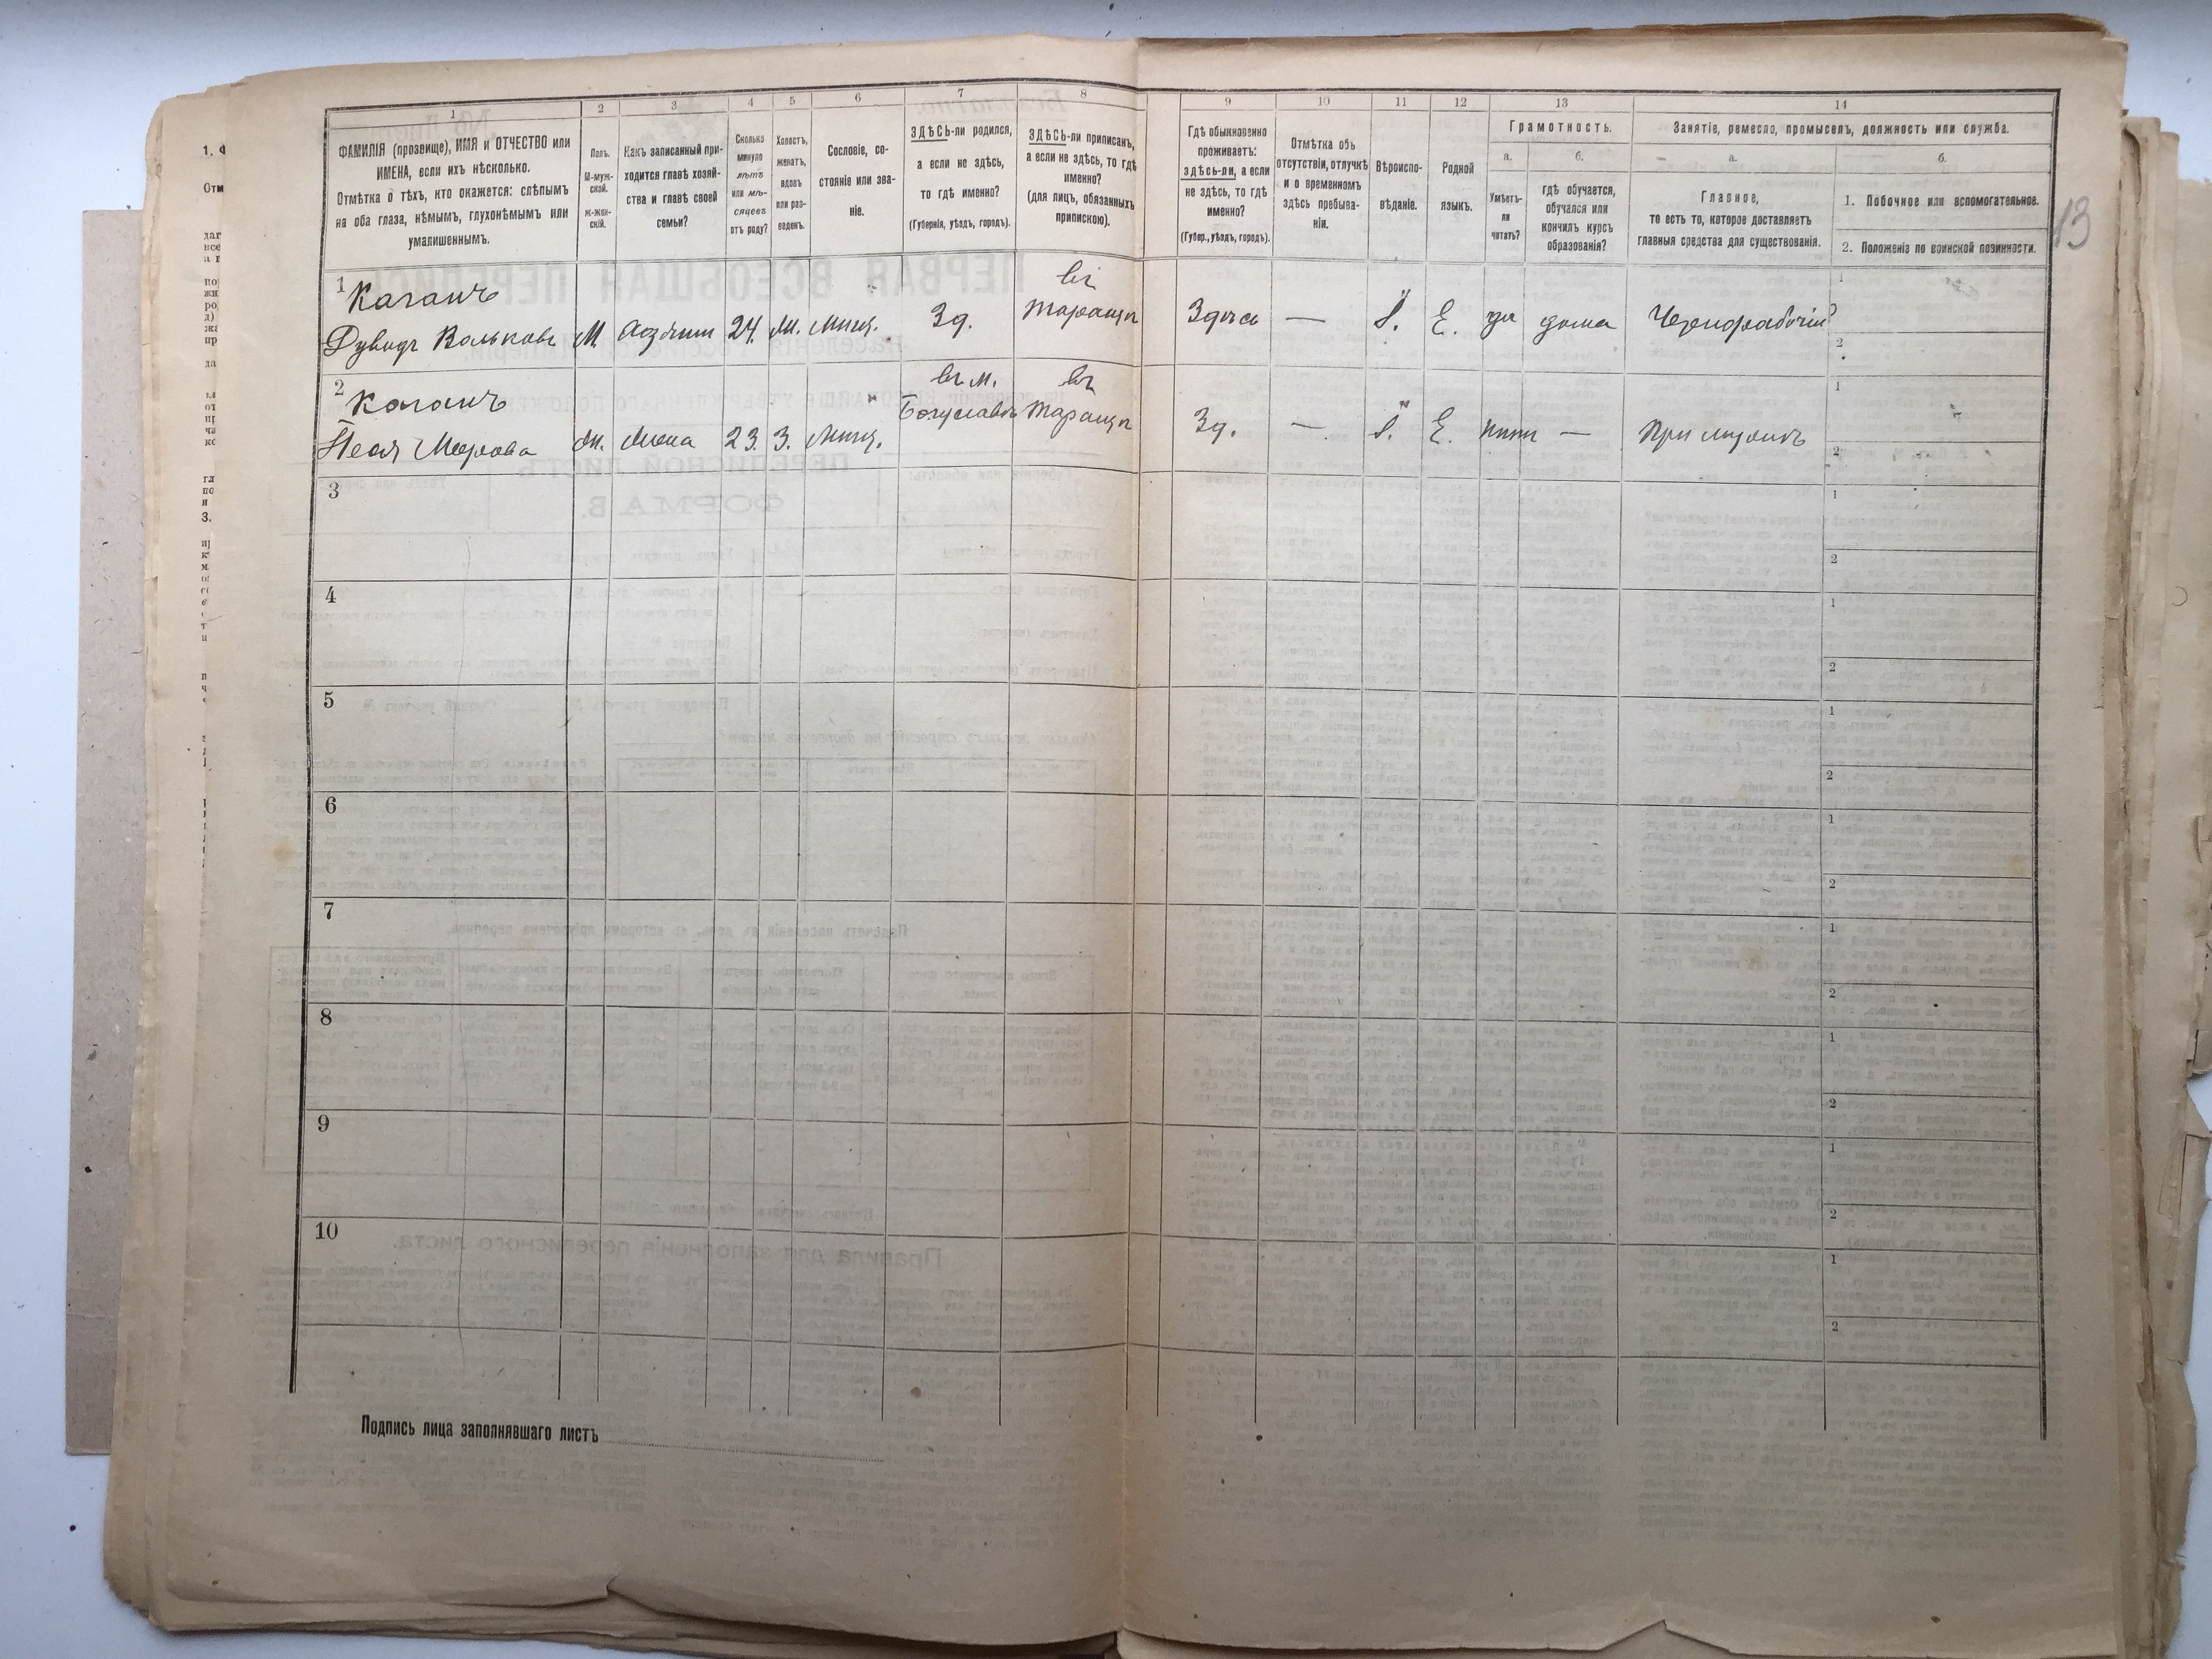 1
2
3
4
5
6
7
8
9
10
11
12
13
14
ФАМИЛІЯ (прозвище), ИМЯ и ОТЧЕСТВО или
ИМЕНА, если ихъ нѣсколько.
Отмѣтка о тѣхъ, кто окажется: слѣпымъ
на оба глаза, нѣмымъ, глухонѣмымъ или
умалишеннымъ.
Полъ.
М-муж-
ской.
ж-жен-
скій.
Какъ записанный при-
ходится главѣ хозяй-
ства и главѣ своей
семьи?
Сколько
минуло
лѣтъ
или мѣ-
сяцевъ
отъ роду?
Холостъ,
женатъ,
вдовъ
или раз-
веденъ.
Сословіе, со-
стояніе или зва-
ніе.
ЗДѢСЬ-ли родился,
а если не здѣсь,
то гдѣ именно?
(Губернія, уѣздъ, городъ).
ЗДѢСЬ-ли приписанъ,
а если не здѣсь, то гдѣ
именно?
(для лицъ, обязанныхъ
припискою).
Гдѣ обыкновенно
проживаетъ:
здѣсь-ли, а если
не здѣсь, то гдѣ
именно?
(Губер., уѣздъ, городъ).
Отмѣтка объ
отсутствіи, отлучкѣ
и о временномъ
здѣсь пребыва-
ніи.
Вѣроиспо-
вѣданіе.
Родной
языкъ.
Грамотность.
а.
б.
Умѣетъ-
ли
читать?
гдѣ обучается,
обучался или
кончилъ курсъ
образованія?
Занятіе, ремесло, промыселъ, должность или служба.
а.
б.
Главное,
то есть то, которое доставляетъ
главныя средства для существованія.
1. Побочное или вспомогательное.
2. Положеніе по воинской повинности.
13
1 Каганъ
Дувидъ Вольковъ М. 24. Мѣщ. Зд. въ Таращѣ Здѣсь — І. Е. да дома Чернорабочій
1
2
2 Каганъ
Песя Меерова Жена 23. З. Мѣщ. въ м. Богуславѣ въ Таращѣ Зд. — І. Е. нѣтъ — При мужѣ
1
2
3
1
2
4
1
2
5
1
2
6
1
2
7
1
2
8
1
2
9
1
2
10
1
2
Подпись лица заполнявшаго листъ